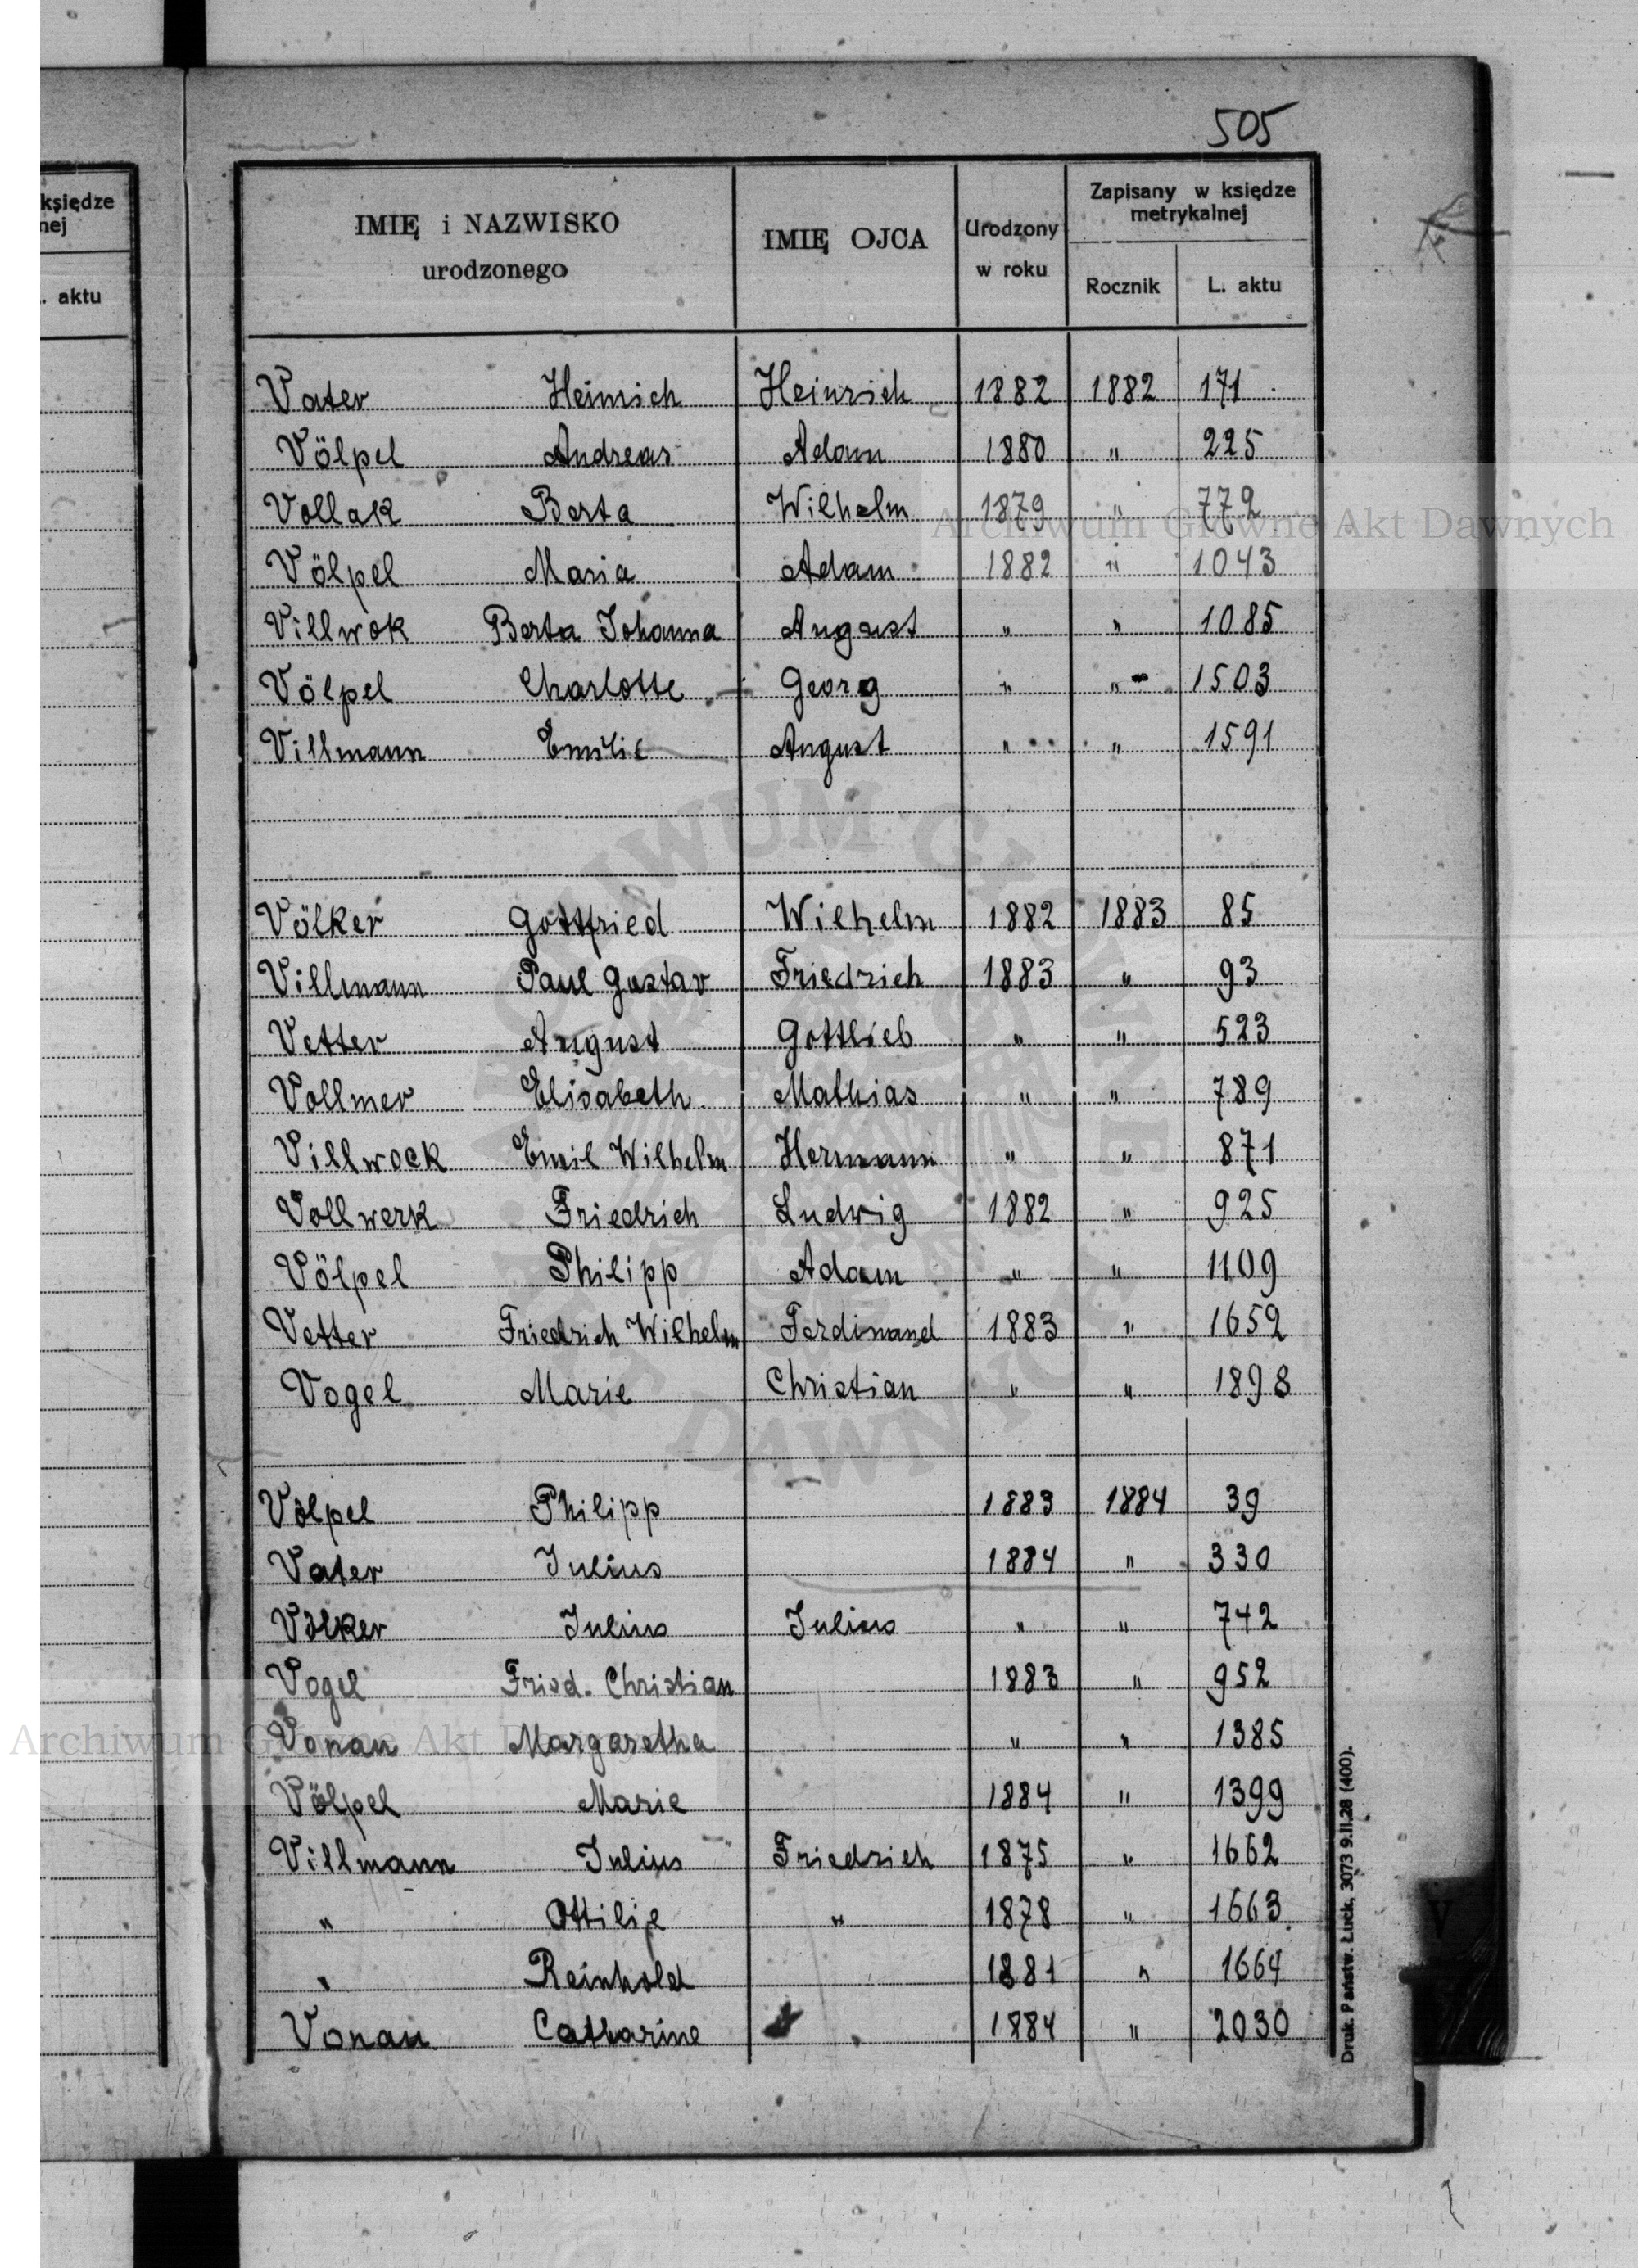 505
księdze
nej
. aktu
IMIĘ i NAZWISKO
urodzonego
IMIĘ OJCA
Urodzony
w roku
Zapisany w księdze
metrykalnej
Rocznik
L. aktu
Vater Heinrich Heinrich 1882 1882 171
Völpel Andreas Adam 1880 " 225
Vollak Berta Wilhelm 1879 " 772
Völpel Maria Adam 1882 " 1043
Villwok Berta Johanna August " " 1085
Völpel Charlotte Georg " " 1503
Villmann Emilie August " " 1591
Völker Gottfried Wilhelm 1882 1883 85
Villmann Paul Gustav Friedrich 1883 " 93
Vetter August Gottlieb " " 523
Vollmer Elisabeth Mathias " " 789
Villwock Emil Wilhelm Hermann " " 871
Vollwerk Friedrich Ludwig 1882 " 925
Völpel Philipp Adam " " 1109
Vetter Friedrich Wilhelm Ferdinand 1883 " 1652
Vogel Marie Christian " " 1898
Völpel Philipp 1883 1884 39
Vater Julius 1884 " 330
Völker Julius Julius " " 742
Vogel Fried. Christian 1883 " 952
Vonau Margaretha " " 1385
Völpel Marie 1884 " 1399
Villmann Julius Friedrich 1875 " 1662
" Ottilie " 1878 " 1663
" Reinhold 1881 " 1664
Vonau Catharine 1884 " 2030
Druk. Państw. Łuck, 3073 9.II.28 (400).
V
Archiwum Główne Akt Dawnych
Archiwum Główne Akt D
ARCHIWUM GŁÓWNE AKT DAWNYCH